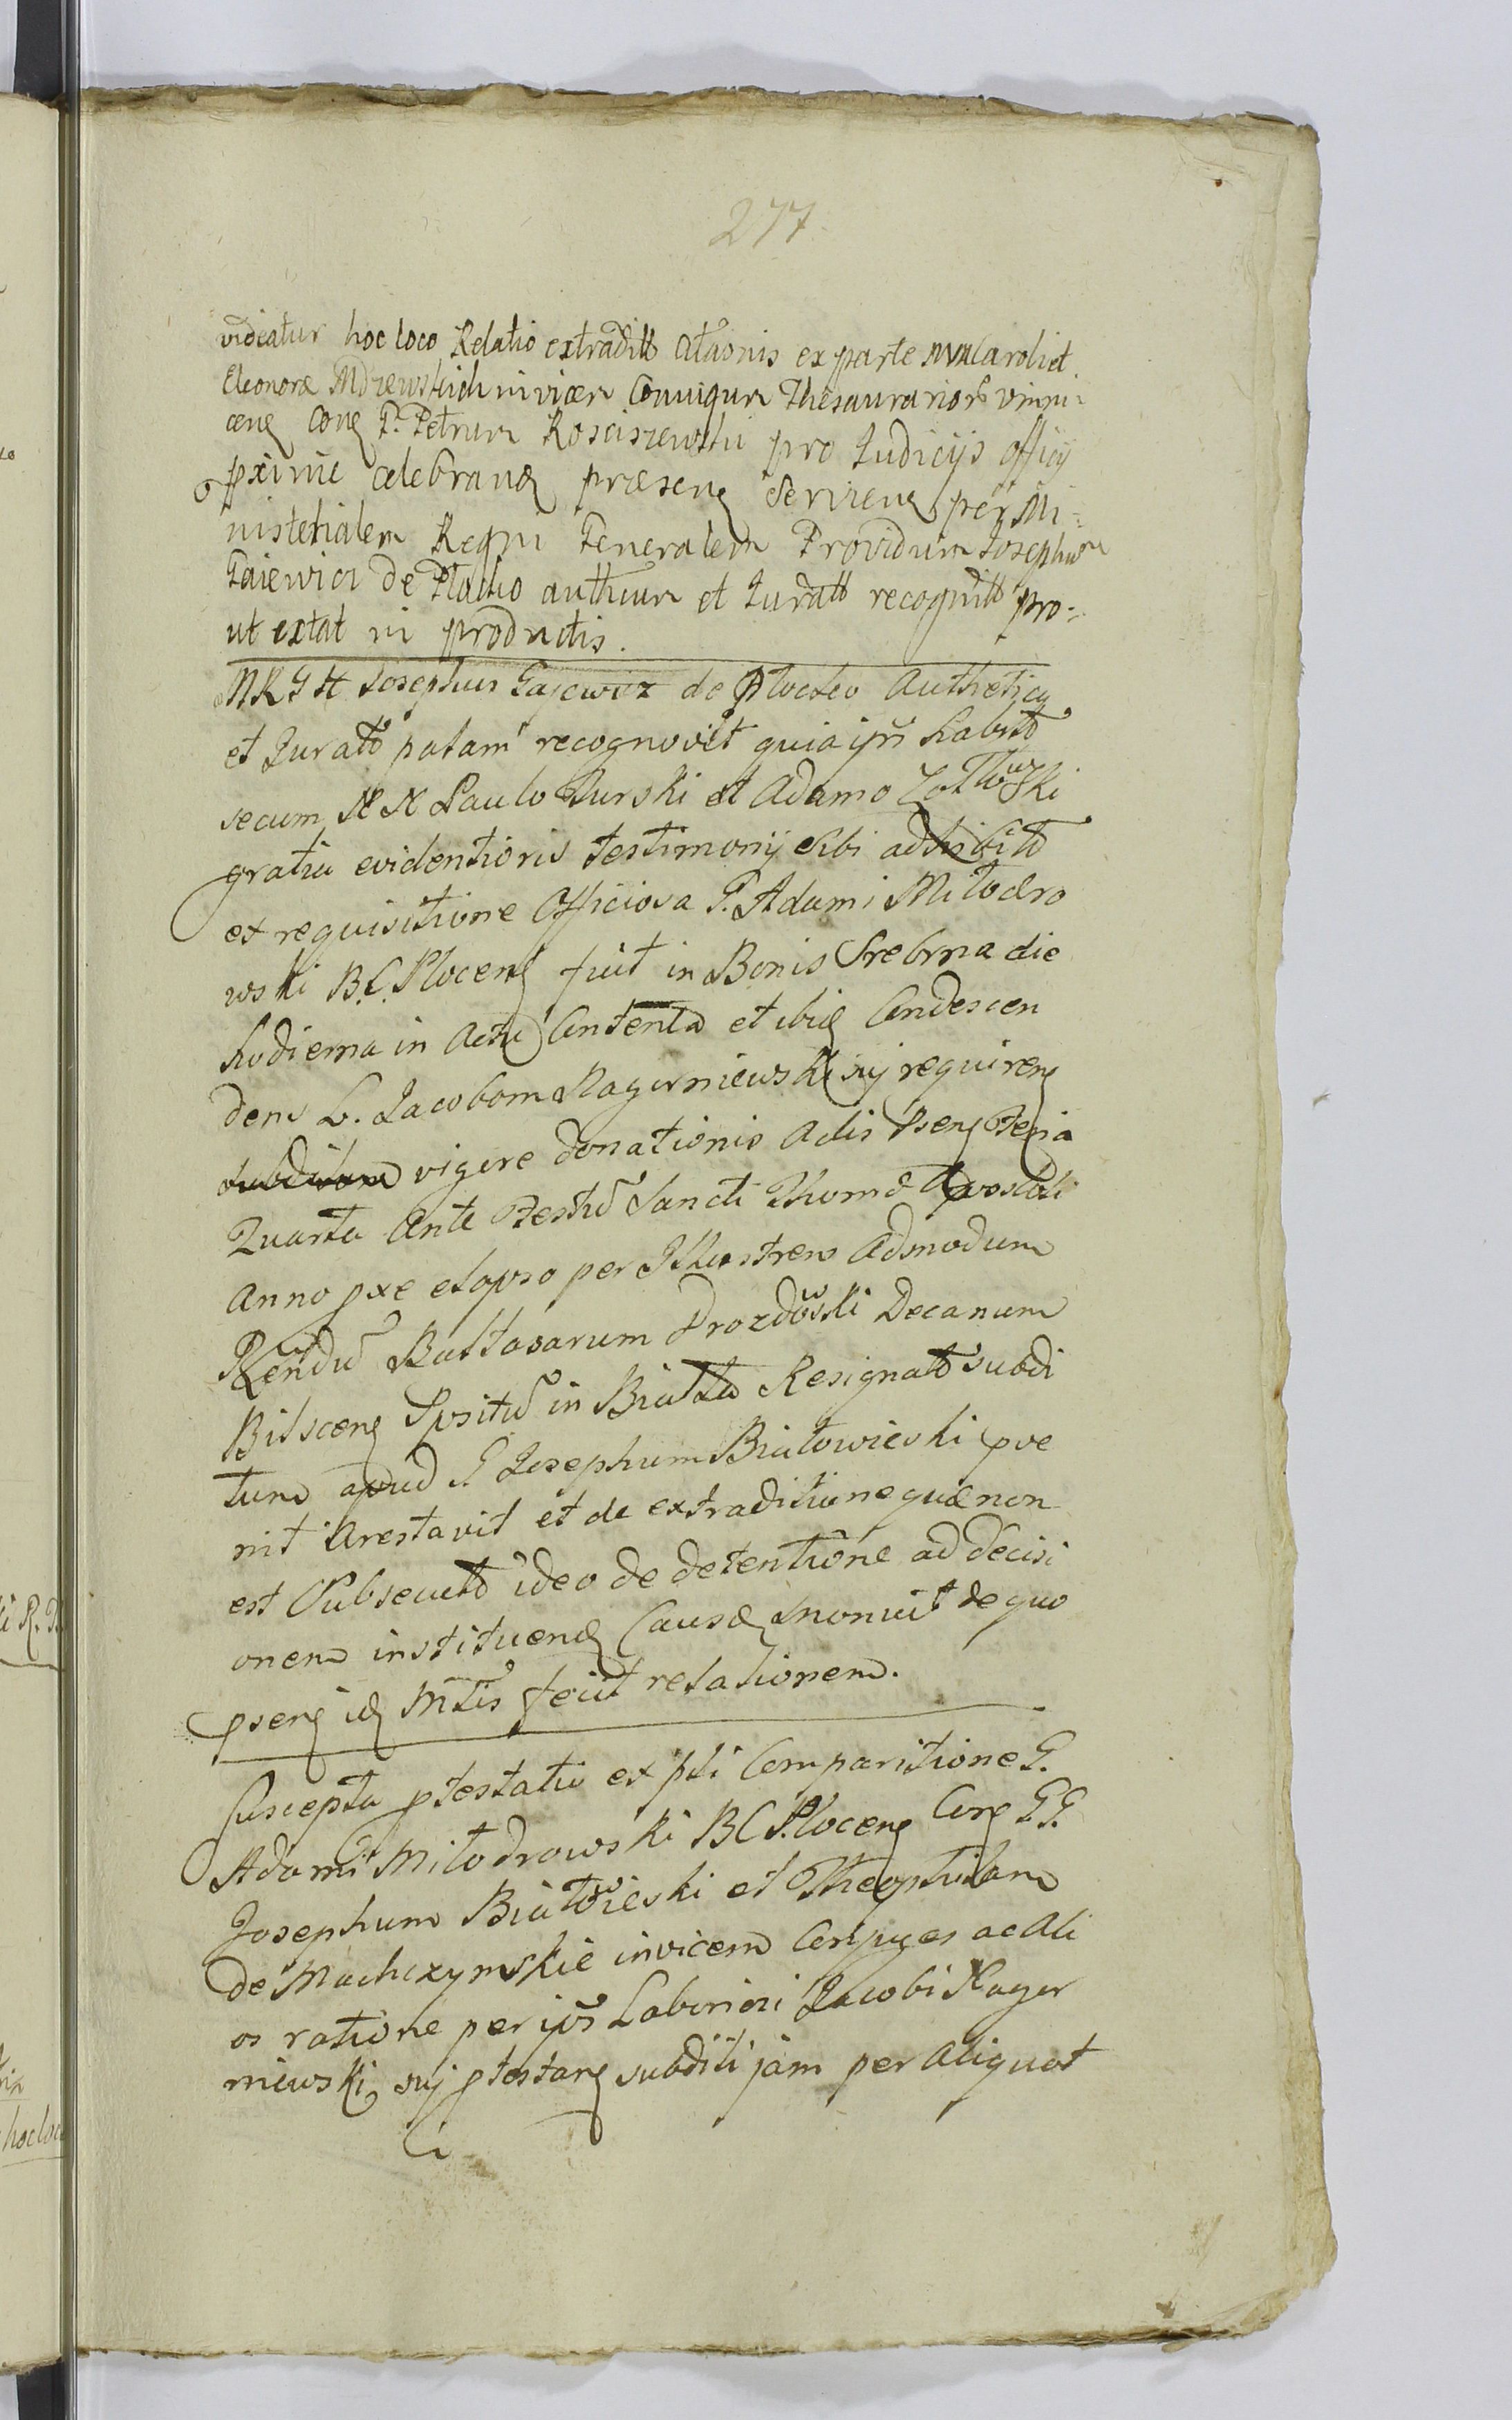 277
videatur hoc loco Relatio extraditt Ataonis ex parte MM Caroli et
Eleonoræ Mdzewskich invicem Coniugum Thesaurarior̃ Vinni-
cen̨ Con̨ G. Petrum Kosciszewski pro Judicijs officij
pxime celebran̨ præsen̨ Servien̨ per Mi-
nisterialem Regni Generalem Providum Josephum
Gaiewicz de Plocko authum et Juratt recognitt pro-
ut extat in productis.
MRGH Josephus Gajewicz de Plocko Autheticus
et Juratt palam recognovit quia ips̃ habitt
secum NN Paulo Turski et Adamo Żołtowski
gratia evidentioris testimonij sibi adhibitt
ex requisitione Officiosa G. Adami Miłodro
wski B.C. Plocen̨ fuit in Bonis Srebrna die
hodierna in Actu Contenta et ibiđ Condescen
dens L. Jacobom Nagurniewski suj requiren̨
vigore donationis Actis Psen̨ Feria
Quarta Ante Festũ Sancti Thomæ Apostoli
Anno pxe elapso per Illustrem Admodum
Rendũ Baltasarum Drozdowski Decanum
Bilscen̨ Ppsitũ in Białła Resignatt subdi
tum apud G Josephum Białowieski poe
nit Arestavit et de extraditione quæ non
est Subsecutt ideo de detentione ad decisi
onem instituen̨ Causæ Inonuit de quo
psen̨ iđ Mtlis fecit relationem.
Suscepta ptestatio ex pti Comparitione G.
Adami Miłodrowski BC Plocen̨ Con̨ GG.
Josephum Białowieski et Theophilam
de Machczymskie invicem Conjuges ac Ali
os ratione per ips̃ Laboriosi Jacobi Nagur
niewski suj ptestan̨ subditi jam per Aliquot